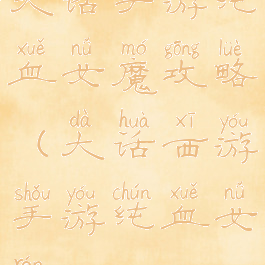 大话手游纯
xuě nǚ mó gōng lüè
血女魔攻略
dà huà xī yóu
（大话西游
shǒu yóu chún xuě nǚ
手游纯血女
rén